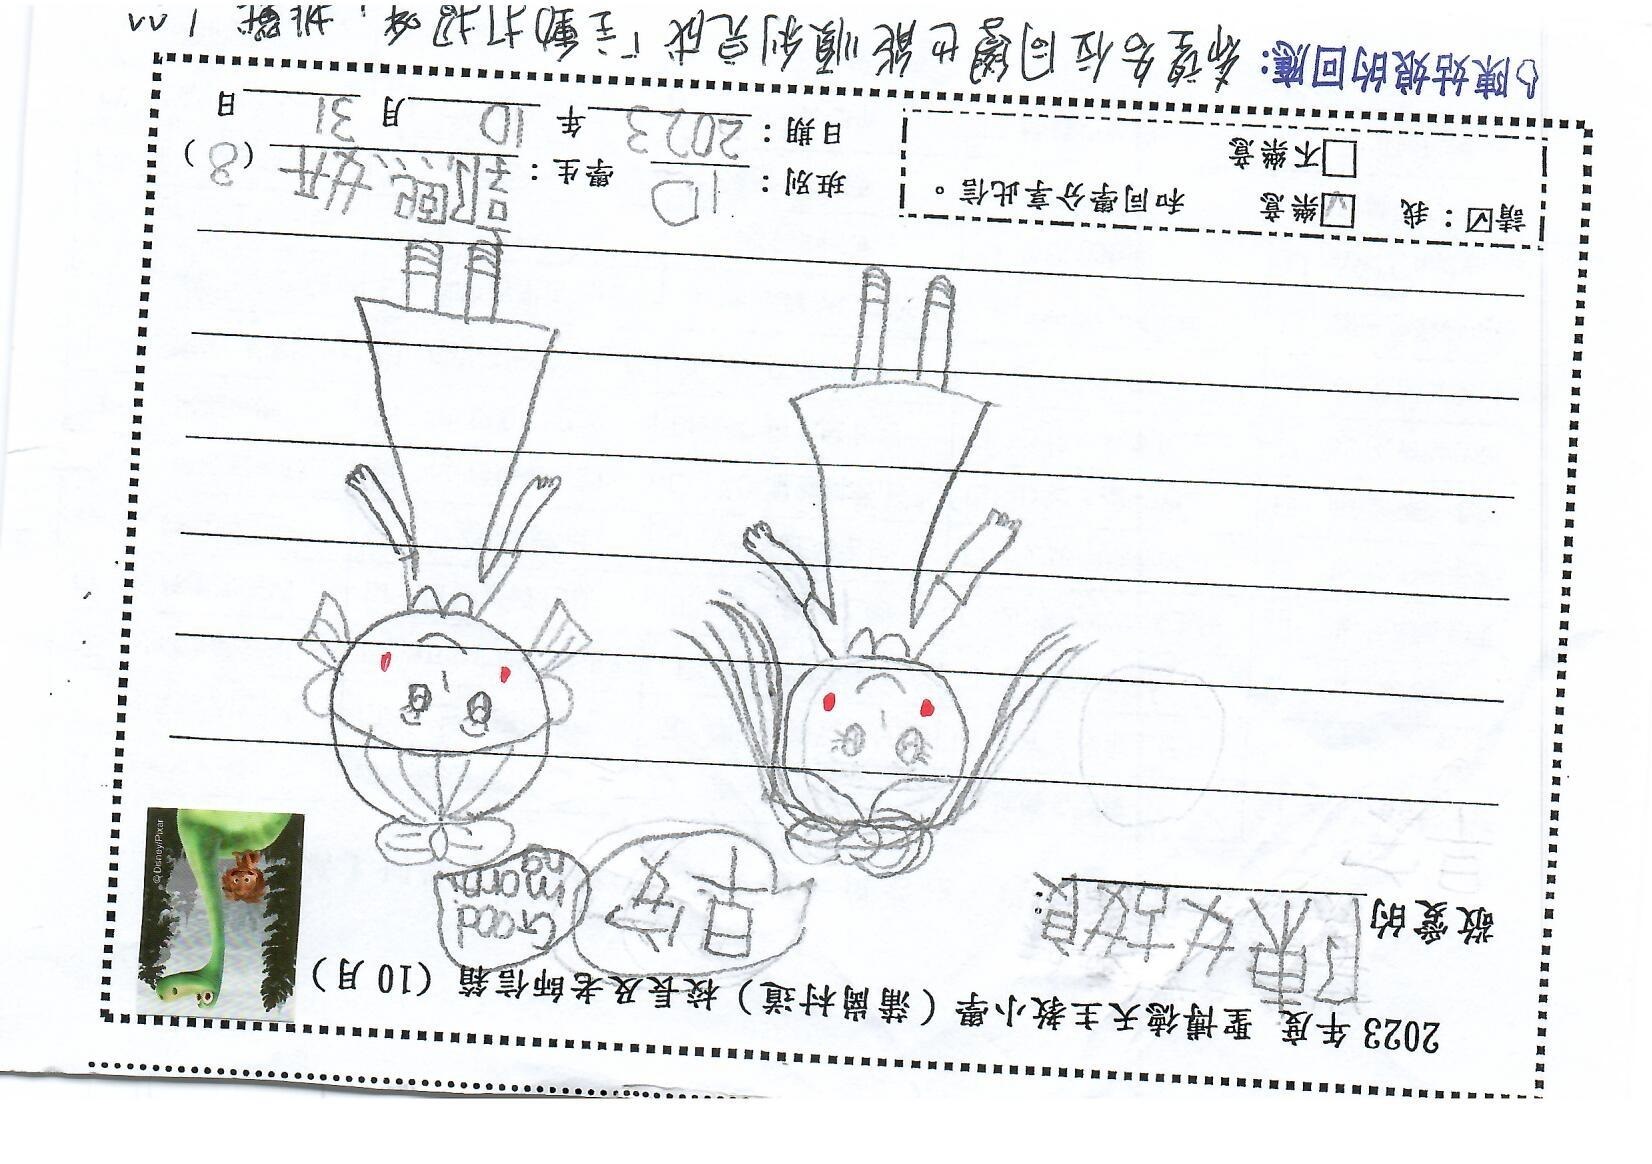 2023 年度 聖博德天主教小學（蒲崗村道）校長及老師信箱（10 月）
敬愛的 陳姑娘：
早安
Good morning
© Disney/Pixar
請☑：我 ☑樂意 和同學分享此信。
□不樂意
班別： 1D 學生： 郭熙妍 （8）
日期： 2023 年 10 月 31 日
陳姑娘的回應：希望各位同學也能順利完成「主動打招呼」挑戰！